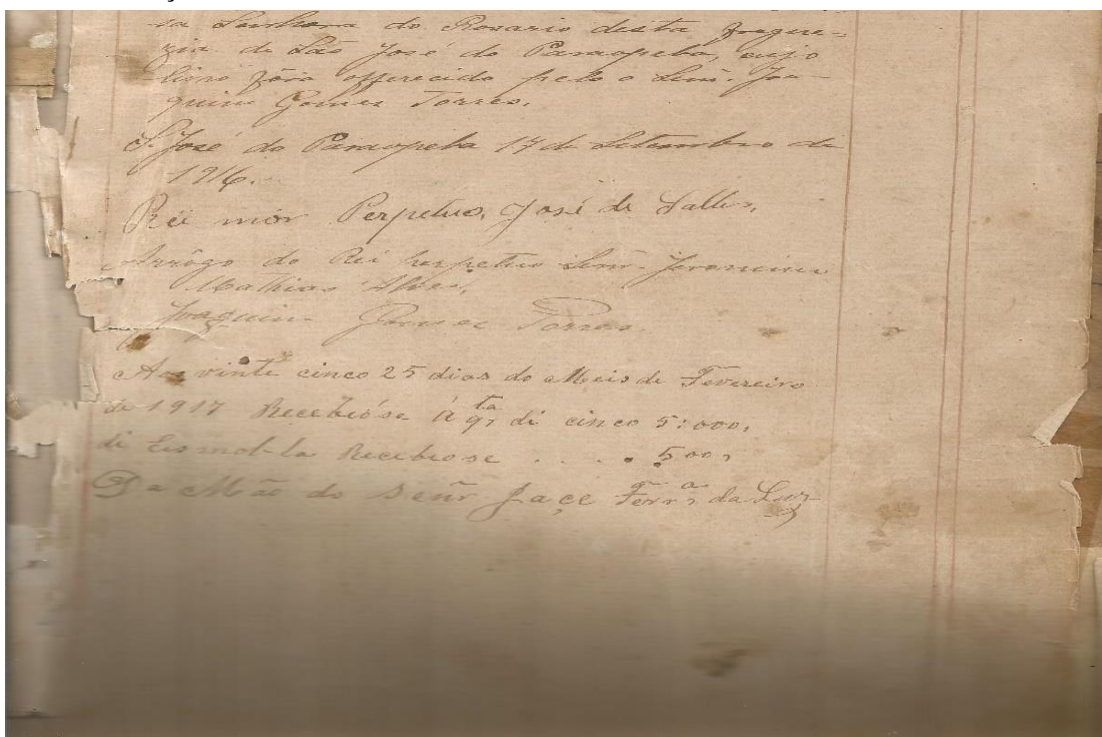 sa Senhora do Rosario desta fregue-
zia de São José do Paraopeba, cujo
livro fôra offerecido pelo o Senr. Joa-
quim Gomes Torres.
S. José do Paraopeba 17 de Setembro de
1916.
Rei mór Perpetuo, José de Salles,
Arrôgo do Rei perpetuo Senr. Jeronimo
Mathias Alves,
Joaquim Gomes Torres.
Aos vinte cinco 25 dias do Meis de Fevereiro
de 1917 Recebeóse A qta di cinco 5:000,
di Esmol-la Recebeose . . . . 5000
Da Mão do Senr Jaçe Ferrª da Luz